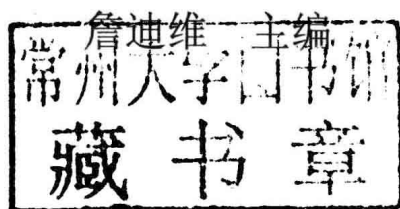 詹迪维 主编
常州大学图书馆
藏书章